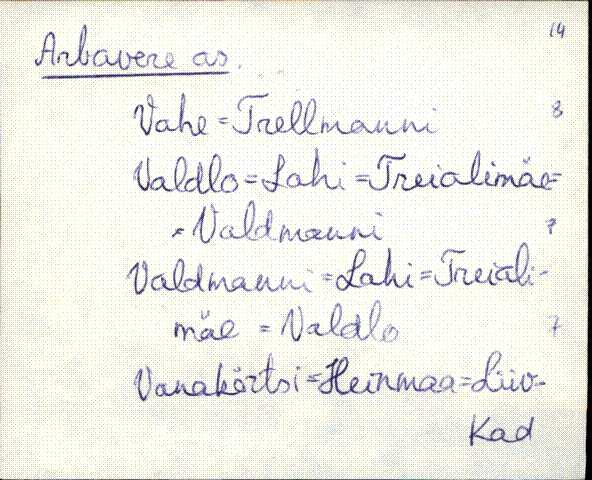 14
Arbavere as.
Vahe = Trellmanni 8
Valdlo = Lahi = Treialimäe =
= Valdmanni 7
Valdmanni = Lahi = Treiali-
mäe = Valdlo 7
Vanakõrtsi = Heinmaa = Liiv-
Kad